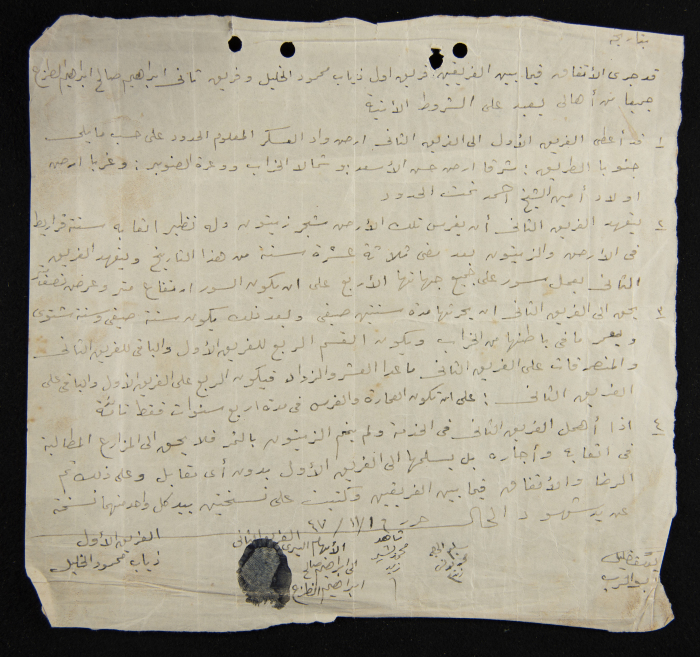 بتاريخه
قد جرى الاتفاق فيما بين الفريقين فريق اول ذياب محمود الخليل و فريق ثانى ابراهيم صالح ابراهيم الطزيز
جميعا من أهالى يعبد على الشروط الاتية
١ قد أعطى الفريق الأول الى الفريق الثانى ارض واد العسكر المعلوم الحدود على حسب ما يلى
جنوبا الطريق : شرقا ارض حسن الأسعد : وشمالا الخراب ووعرة الصنوبر : وغربا ارض
اولاد أمين الشيخ احمد تمت الحدود
٢ يتعهد الفريق الثانى أن يغرس تلك الأرض شجر زيتون وله نظير اتعابه ستة قراريط
فى الأرض والزيتون بعد مضى ثلاثة عشرة سنة من هذا التاريخ ويتعهد الفريق
الثانى بعمل سور على جميع جهاتها الأربع على ان يكون السور ارتفاع متر وعرض نصف متر
٣ يحق الى الفريق الثانى ان يحرثها مدة سنتين صيفى وبعد ذلك يكون سنة صيفى وسنة شتوى
ويعمر ما فى باطنها من الخراب ويكون القسم الربع للفريق الأول والباقى للفريق الثانى
والمتفرقات على الفريق الثانى ما عدا العشر والزواد فيكون الربع على الفريق الأول والباقى على
الفريق الثانى : على ان تكون العمارة والغرس فى مدة اربع سنوات فقط
٤ اذا أهمل الفريق الثانى فى الخدمة ولم ينجح الزيتون بالثمر فلا يحق الى المزارع المطالبة
فى اتعابه وأجاره بل يسلمها الى الفريق الأول بدون أى مقابل وعلى ذلك تم
الرضا والاتفاق فيما بين الفريقين وكتبت على نسختين بيد كل واحد منهما نسخة
عن يد شهود الحال حرر
الفريق الأول
ذياب محمود الخليل
الفريق الثانى
ابراهيم صالح
ابراهيم الطزيز
شاهد
محمود
زيد